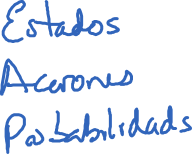 Estados
Acciones
Probabilidads